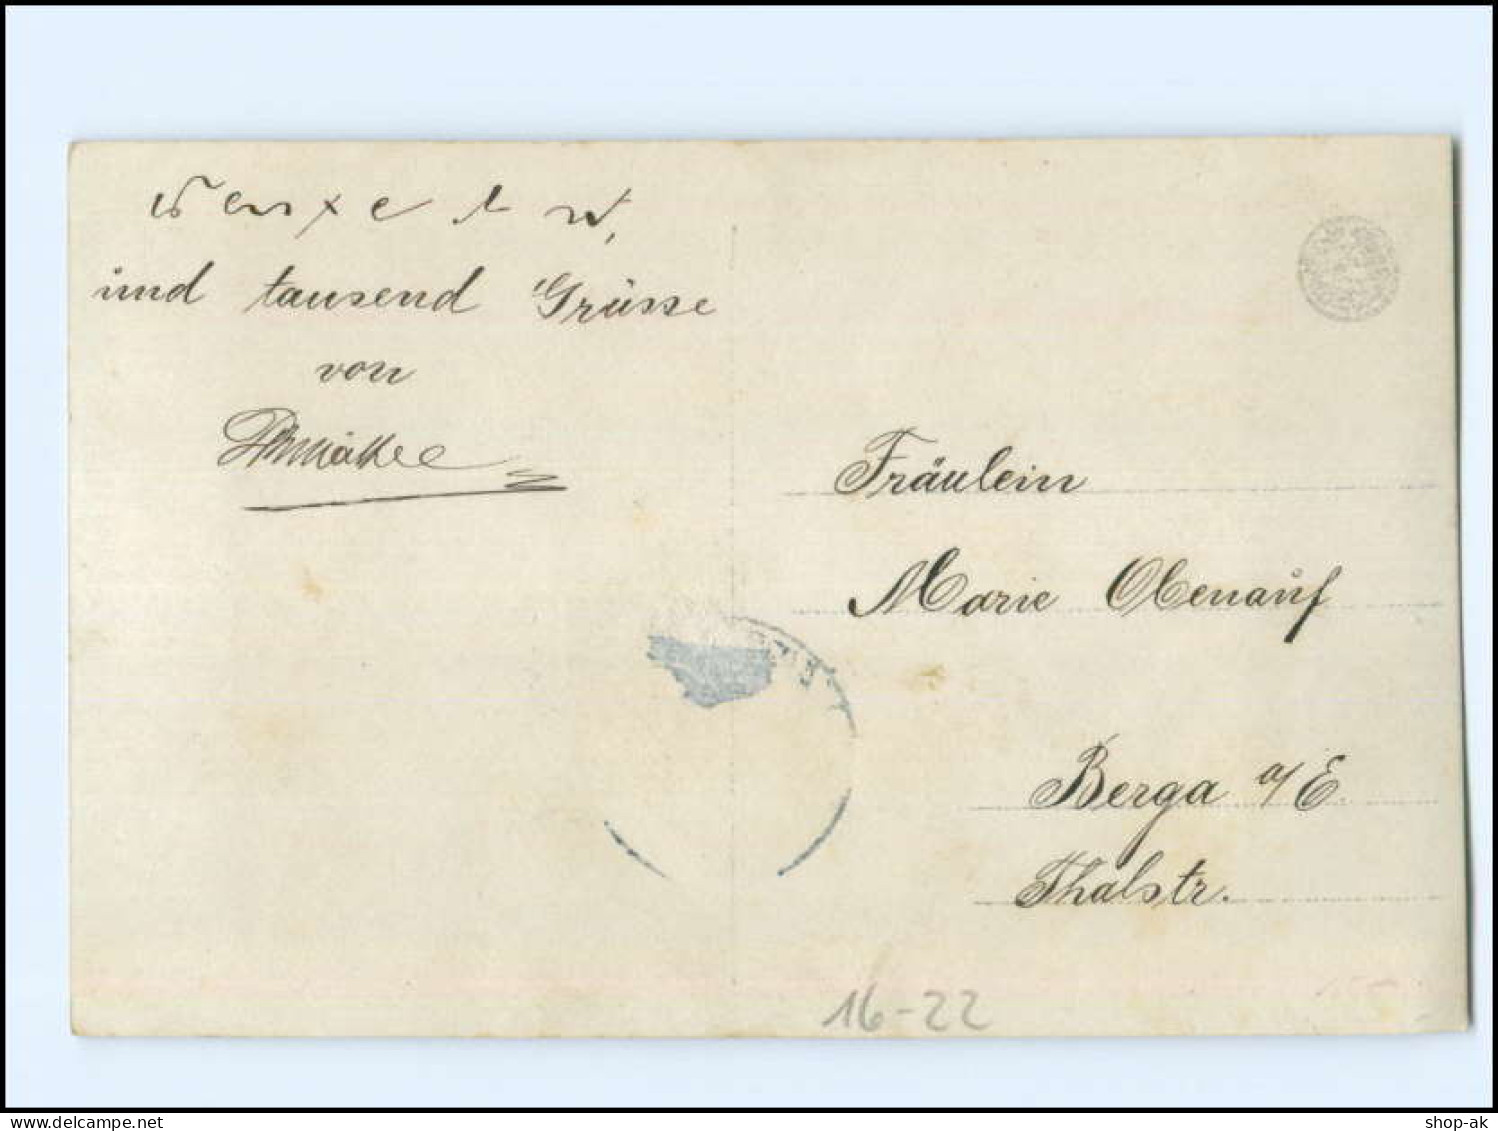 und tausend Grüsse
von
Fräulein
Marie Obenauf
Berga a/E.
Thalstr.
16-22
shop-ak